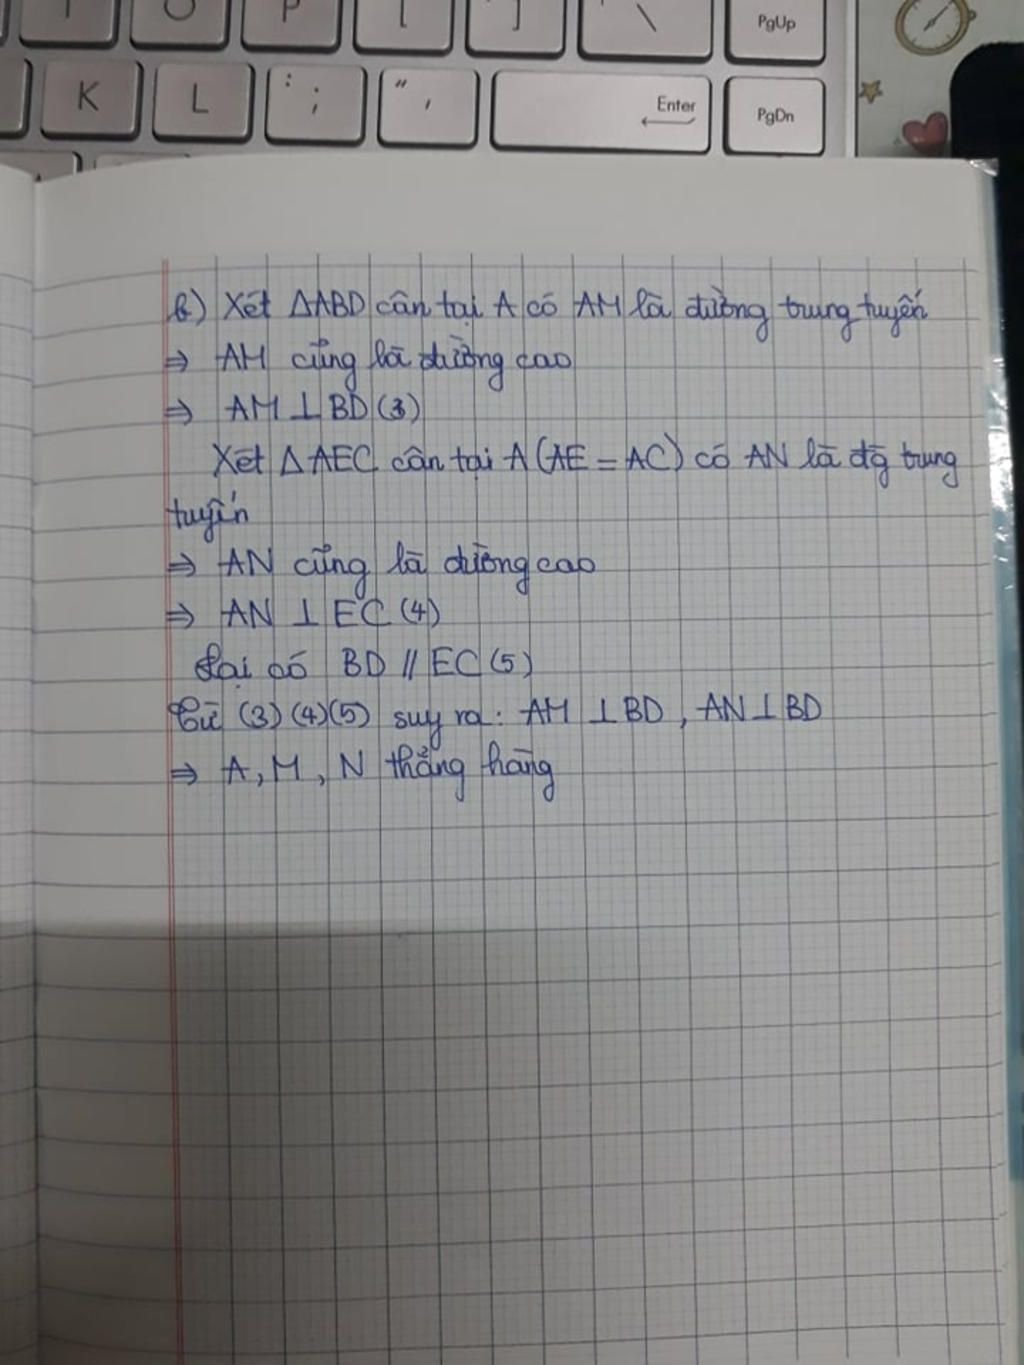 P [ ] \ PgUp
K L : ; " , Enter PgDn
b) Xét ΔABD cân tại A có AM là đường trung tuyến
⇒ AM cũng là đường cao
⇒ AM ⊥ BD (3)
Xét ΔAEC cân tại A (AE = AC) có AN là đg̀ trung
tuyến
⇒ AN cũng là đường cao
⇒ AN ⊥ EC (4)
Lại có BD // EC (5)
Từ (3) (4)(5) suy ra: AM ⊥ BD, AN ⊥ BD
⇒ A, M, N thẳng hàng